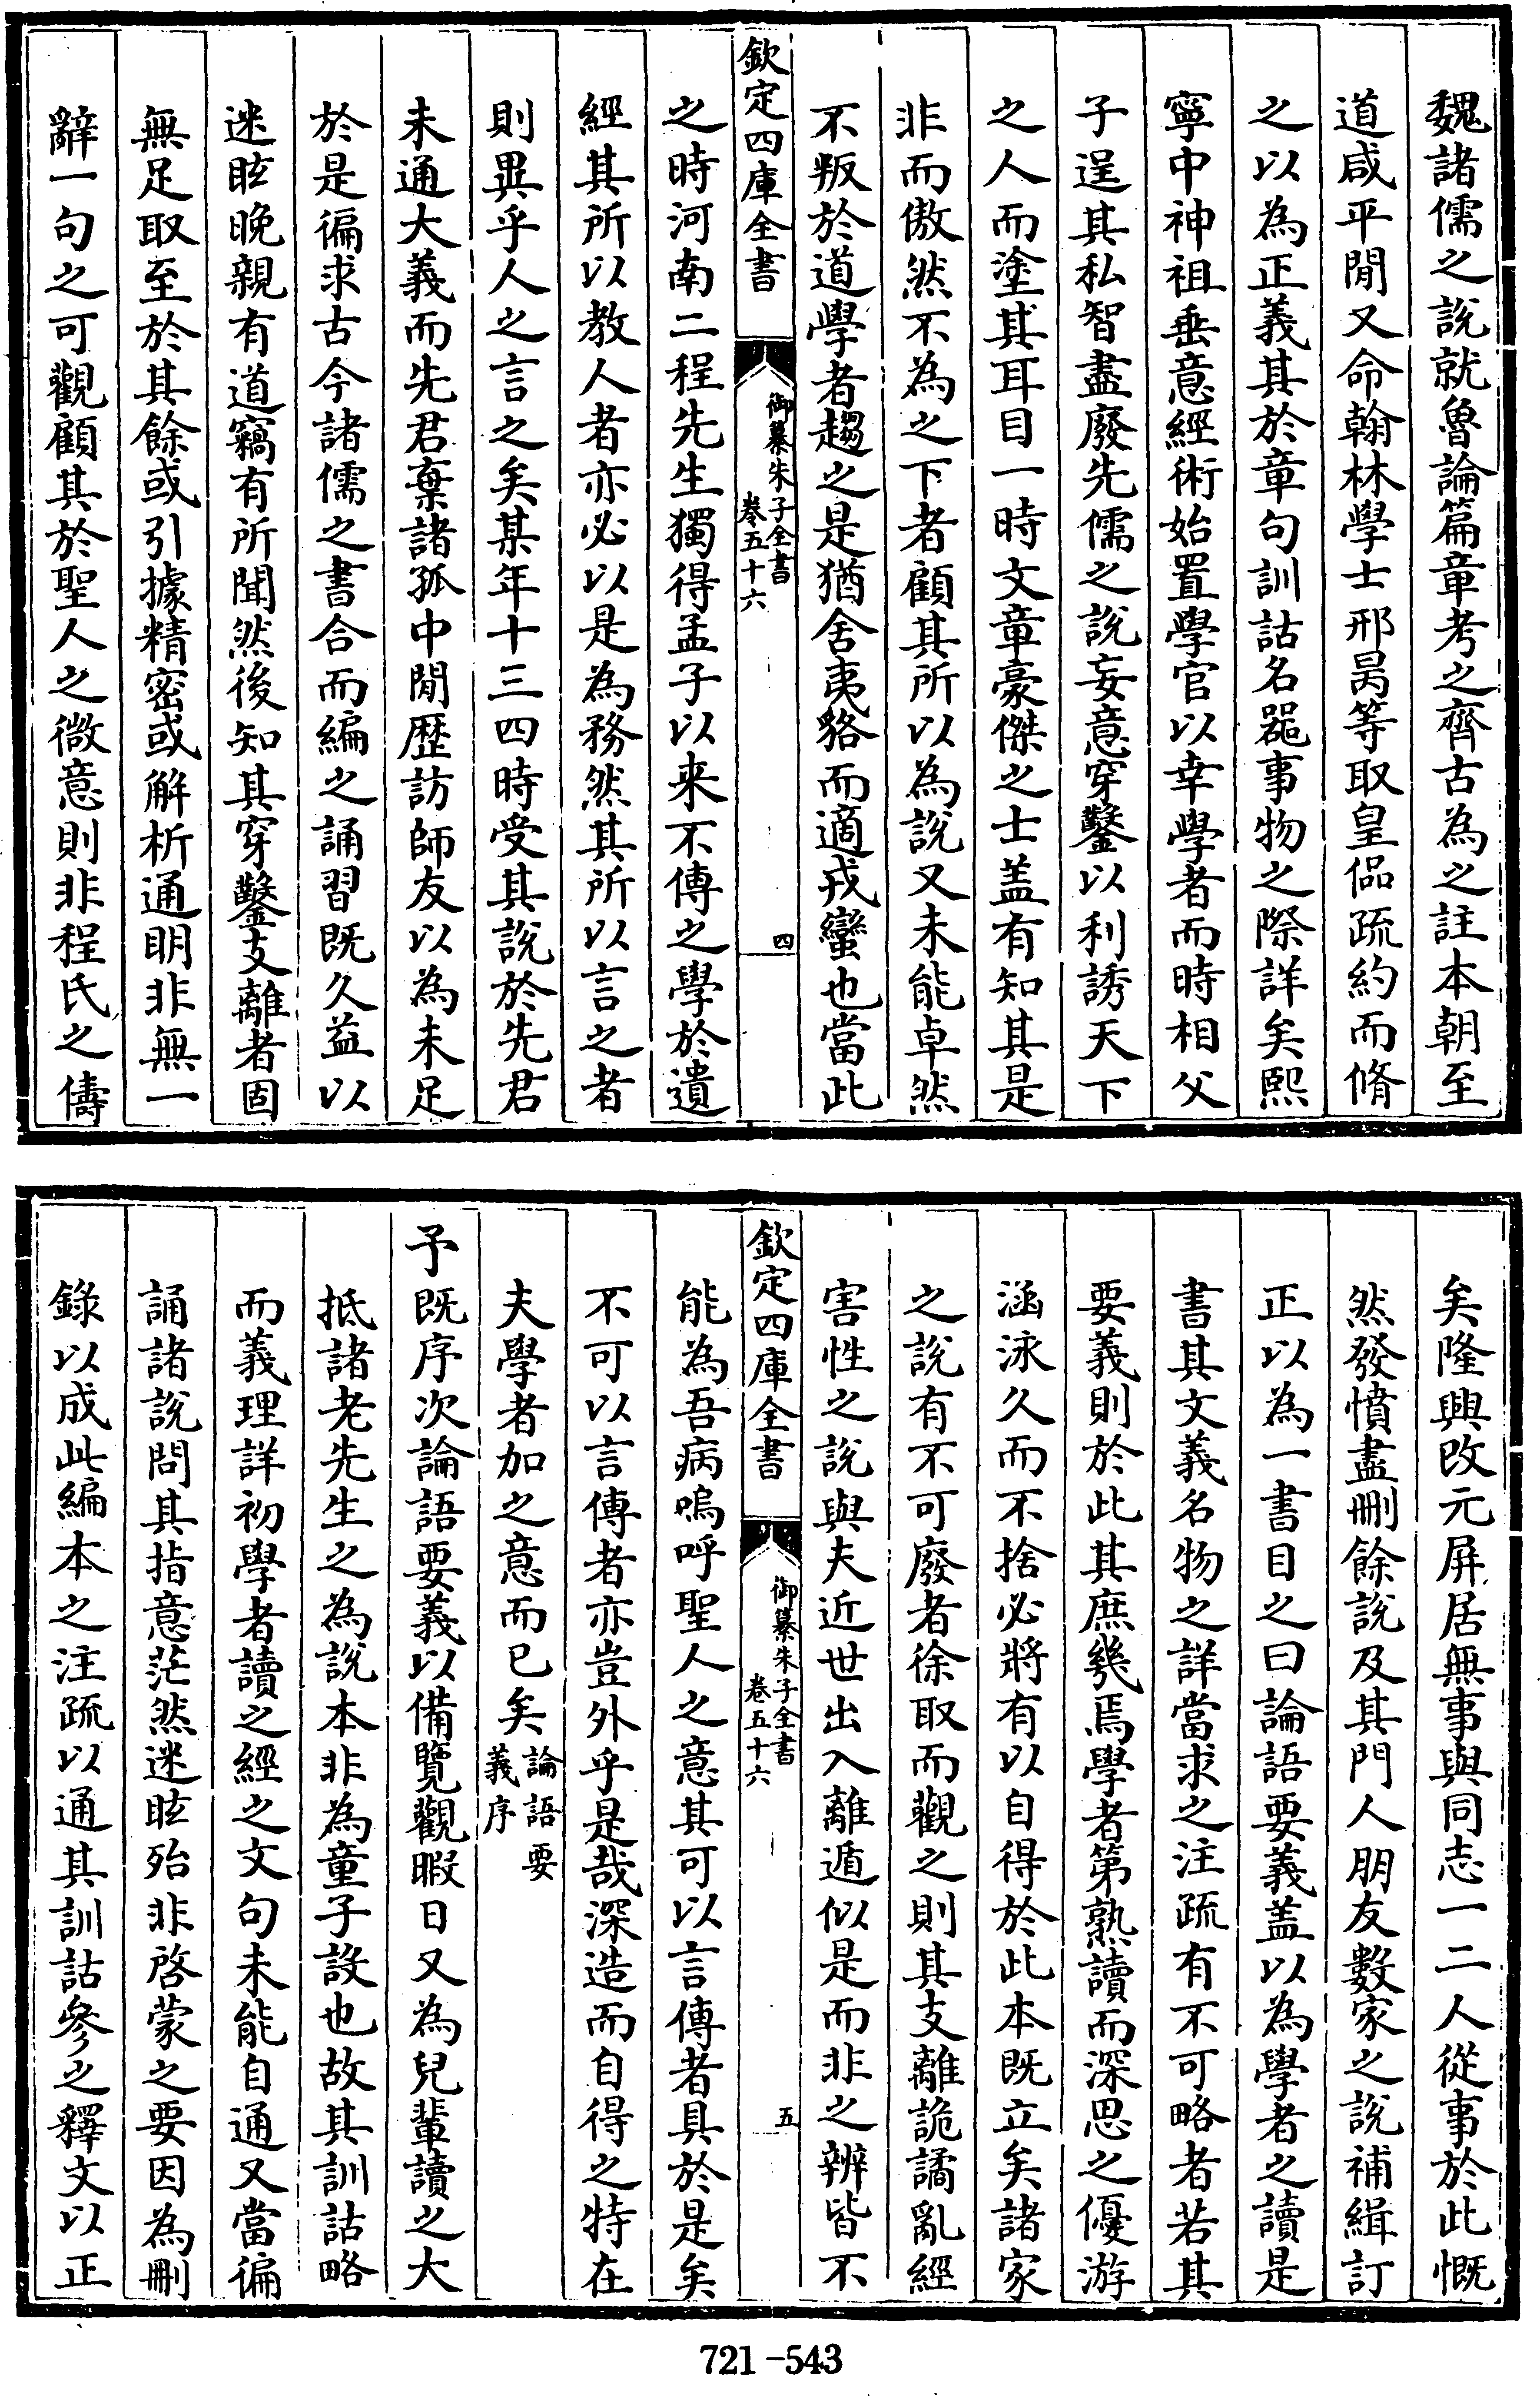 魏諸儒之說就魯論篇章考之齊古為之註本朝至
道咸平閒又命翰林學士邢昺等取皇侃疏約而脩
之以為正義其於章句訓詁名器事物之際詳矣熙
寧中神祖垂意經術始置學官以幸學者而時相父
子逞其私智盡廢先儒之說妄意穿鑿以利誘天下
之人而塗其耳目一時文章豪傑之士盖有知其是
非而傲然不為之下者顧其所以為說又未能卓然
不叛於道學者趨之是猶舍夷貉而適戎蠻也當此
欽定四庫全書
御纂朱子全書
卷五十六
四
之時河南二程先生獨得孟子以来不傳之學於遺
經其所以教人者亦必以是為務然其所以言之者
則異乎人之言之矣某年十三四時受其說於先君
未通大義而先君棄諸孤中閒歴訪師友以為未足
於是徧求古今諸儒之書合而編之誦習既久益以
迷眩晚親有道竊有所聞然後知其穿鑿支離者固
無足取至於其餘或引據精密或解析通明非無一
辭一句之可觀顧其於聖人之微意則非程氏之儔
矣隆興改元屏居無事與同志一二人從事於此慨
然發憤盡刪餘說及其門人朋友數家之說補緝訂
正以為一書目之曰論語要義盖以為學者之讀是
書其文義名物之詳當求之注疏有不可略者若其
要義則於此其庶幾焉學者第熟讀而深思之優游
涵泳久而不捨必將有以自得於此本既立矣諸家
之說有不可廢者徐取而觀之則其支離詭譎亂經
害性之說與夫近世出入離遁似是而非之辨皆不
欽定四庫全書
御纂朱子全書
卷五十六
五
能為吾病嗚呼聖人之意其可以言傳者具於是矣
不可以言傳者亦豈外乎是哉深造而自得之特在
夫學者加之意而已矣論語要
義序
予既序次論語要義以備覽觀暇日又為兒輩讀之大
抵諸老先生之為說本非為童子設也故其訓詁略
而義理詳初學者讀之經之文句未能自通又當徧
誦諸說問其指意茫然迷眩殆非啓蒙之要因為刪
錄以成此編本之注疏以通其訓詁參之釋文以正
721-543